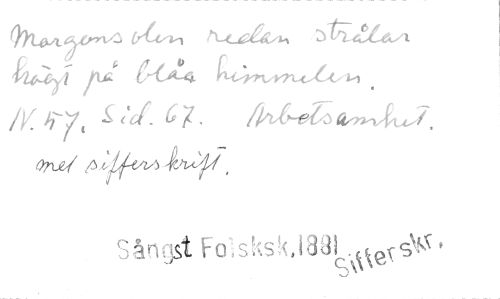 Morgonsolen redan strålar
högt på blåa himmelen.
N. 57, Sid. 67. Arbetsamhet.
med sifferskrift.
Sångst Folsksk,1881 Sifferskr.